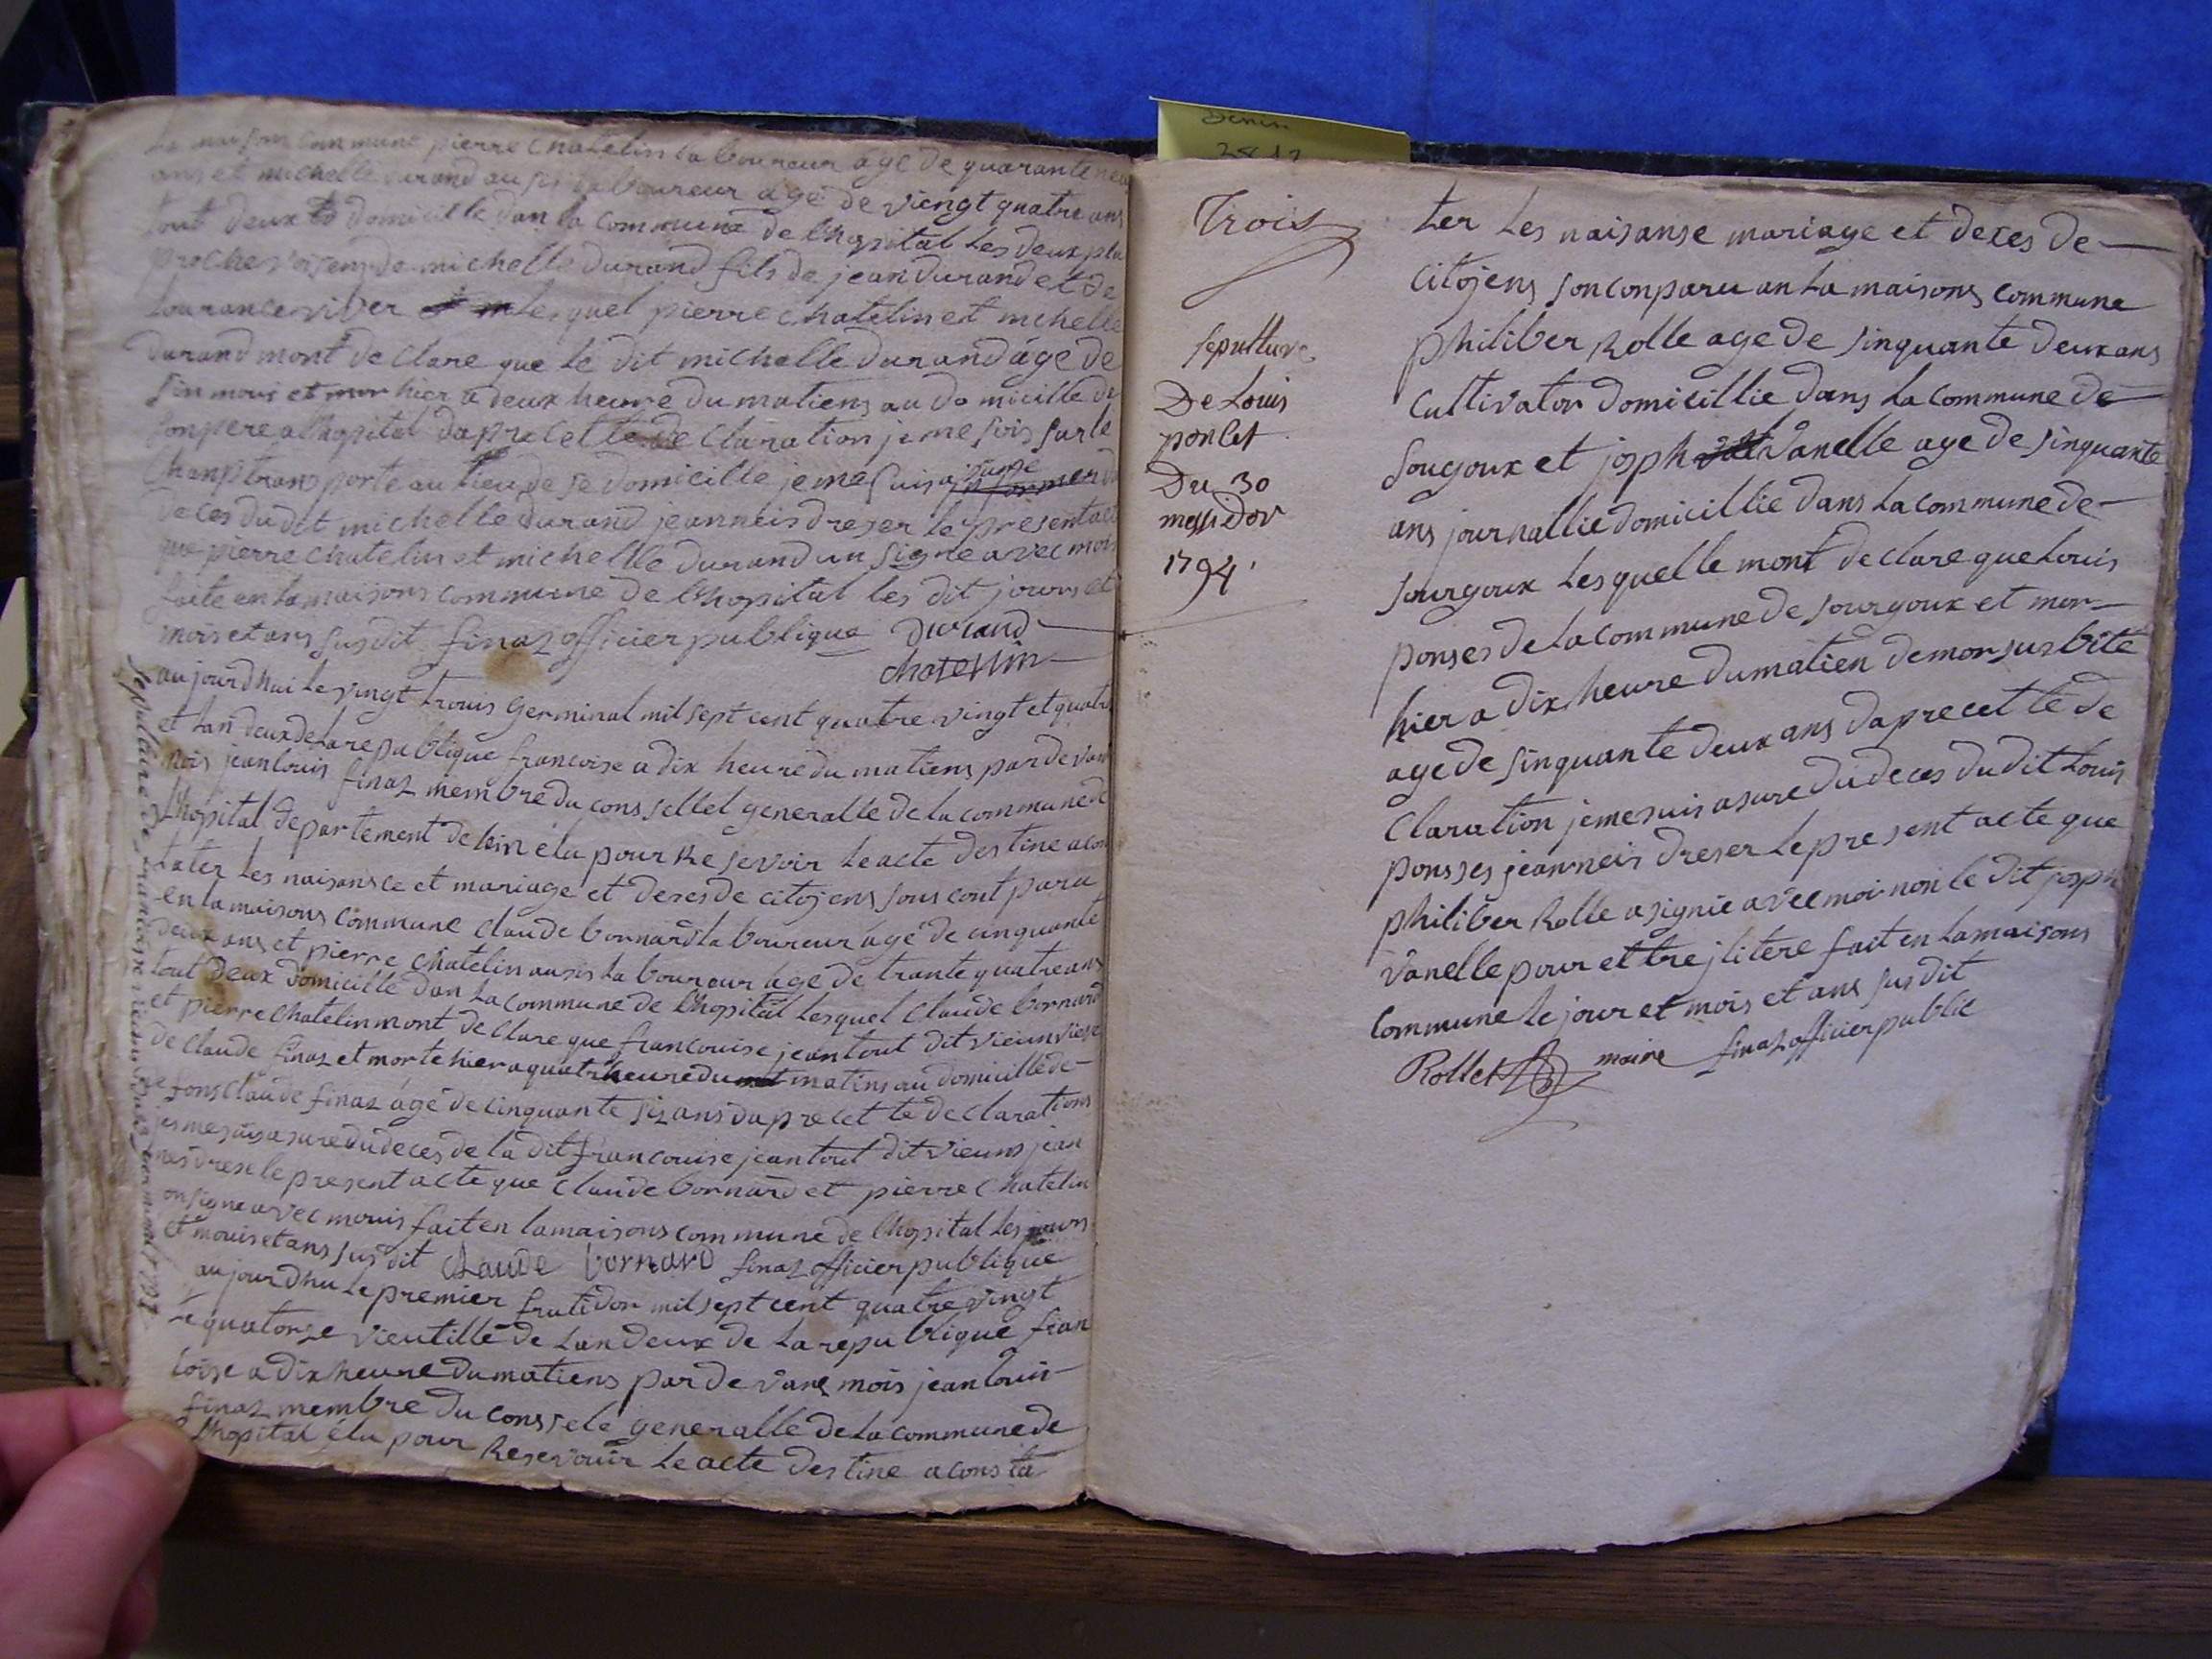 La maison commune pierre chatelin laboureur age de quarante neu
ans et michelle durand ausis laboureur age de viengt quatre ans
tout deux to domicille dan la commune de lhopital les deux plu
proche voisems de michelle durand fils de jean durand et de
lourance viber lesquel pierre chatelin et michelle
durand mont declare que le dit michelle durand age de
sin mois et mor hier a deux heure du matiens au domicille de
son pere a lhopital daprecette declaration je me sois sur le
chanp transporte au lieu de se domicille je me suis asure du
deces du dit michelle durand jeanneis dreser le present acte
que pierre chatelin et michellle durand un signe avec mois
faite en la maisons commune de lhopital les dit jours et
mois et ans susdit finaz officier publique Durand
chatellin
aujourdhui le vingt trouis Germinal mil sept cent quatre vingt et quatr
et lan deux de la republique francoise a dix heure du matiens par devant
mois jean louis finaz membre du conssellel generalle de la commune de
Lhopital departement de lein élu pour resevoir le acte destine a cons
tater les naisansce et mariage et deces de citojens sous cont paru
en la maisons commune claude bornard laboureur age de cinquante
deux ans et pierre chatelin ausis laboureur age de trante quatre ans
tout deux domicille dan la commune de lhopital lesquel claude bornard
et pierre chatelin mont declare que francouise jeantout dit vieun vieve
de claude finaz et morte hier a quatr heure du mat matins au domicille de
fons claude finaz age de cinquante siz ans daprecette declarations
je me suis asure du deces de la dit francouise jeantout dit vieuns jean
nes drese le present acte que claude bornard et pierre chatelin
on signe avec mouis fait en la maisons commune de lhopital les jours
et mouis et ans susdit claude bornard finaz officier publique
aujourdhu le premier frutidor mil sept cent quatre vingt
te quatorze vieutille de lan deux de la republique fran
coise a dix heure du matiens par devans mois jean louis
finaz membre du conssele generalle de la commune de
Lhopital élu pour Resevouir le acte destine a consta
Sepulture de francoise
germinal 1794
Trois
sepulture
De Louis
poncet
Du 30
messidor
1794
ter les naisanse mariage et deces de
citojens son conparu an la maisons commune
philiber Rolle age de sinquante deux ans
cultivator domicillie dans la commune de
sougoux et josph vanelle age de sinquante
ans journallie domicillie dans la commune de
sourgoux lesquelle mont declare que louis
ponses de la commune de sourgoux et mor
hier a dix heure du matien de mor susbite
age de sinquante deux ans daprecette de
claration je me suis asure du deces du dit louis
ponsses jeanneis dreser le present acte que
philiber Rolle a signie avec moi non le dit josph
vanelle pour ettre jlitere fait en la maisons
commune le jour et mois et ans susdit
Rollet maire finaz officier public